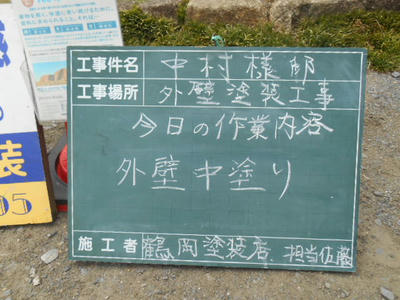 工事件名 中村様邸
工事場所 外壁塗装工事
今日の作業内容
外壁中塗り
施工者 鶴岡塗装店 担当佐藤
装
05